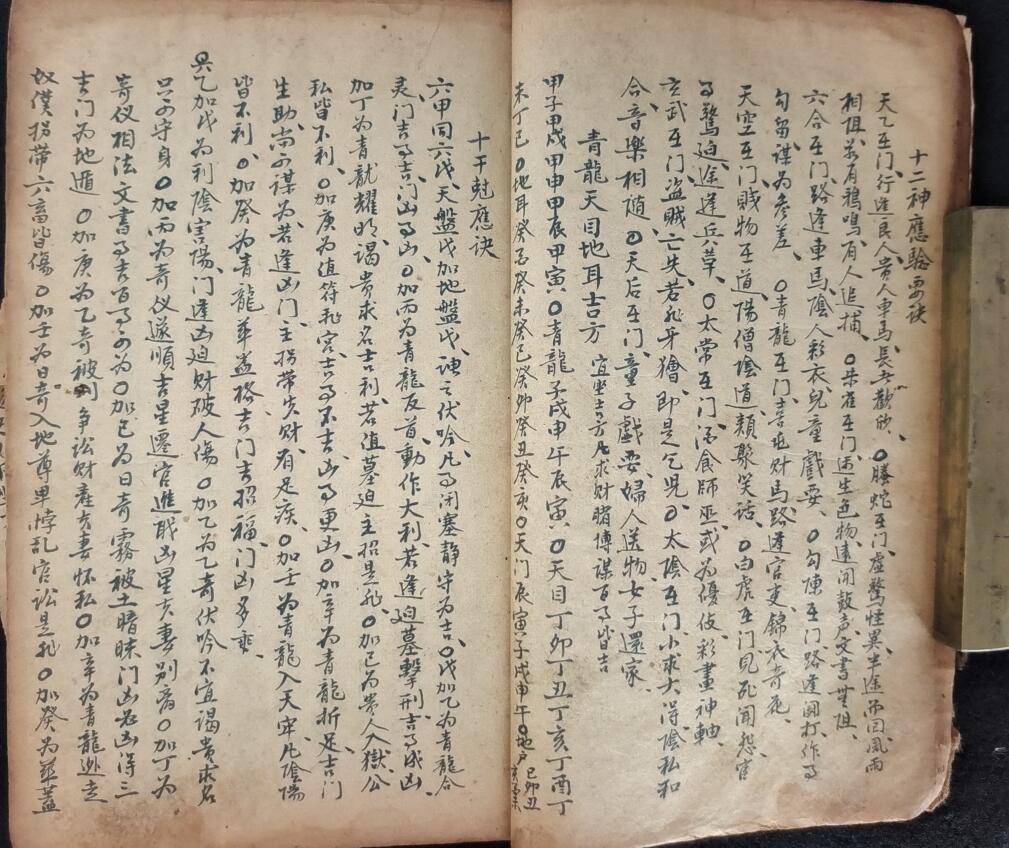 十二神應驗要訣
天乙在门、行逢良人、貴人車馬、長者歡欣、〇螣蛇在门、虛驚怪異、半途而回、風雨
相阻、若有鴉鳴、有人追捕、〇朱雀在门、生色物遠聞鼓声、文書無阻、
六合在门、路逢車馬、陰人彩衣、兒童戲耍、〇勾陳在门、路逢闘打、作事
勾留、謀为參差、〇青龍在门、喜屯財馬、路逢官吏、錦衣奇花、
天空在门、賤物在道、陽僧陰道、類聚笑话、〇白虎在门、見死聞怨、官
事驚迫、途逢兵革、〇太常在门、酒食師巫、或为優伎、彩畫神軸、
玄武在门、盗賊亡失、若非牙獪、即是乞児、〇太陰在门、小求大得、陰私和
合、音樂相随、〇天后在门、童子戲耍、婦人送物、女子還家、
青龍天目地耳吉方 宜坐吉方凡求財賭博謀百事皆吉
甲子甲戌甲申甲午甲辰甲寅〇青龍子戌申午辰寅、〇天目丁卯丁丑丁亥丁酉丁
未丁巳〇地耳癸酉癸未癸巳癸卯癸丑癸亥〇天门辰寅子戌申午〇地户巳卯丑
亥酉未
十干尅應訣
六甲同六戊天盤戊加地盤戊、謂之伏吟、凡事闭塞、静守为吉、〇戊加乙为青龍合
灵、门吉事吉、门凶事凶、〇加丙为青龍反首、動作大利、若逢迫墓擊刑、吉事成凶、
加丁为青龍耀明、謁贵求名吉利、若值墓迫、主招是非、〇加己为贵人入獄、公
私皆不利、〇加庚为值符飛宮、吉事不吉、凶事更凶、〇加辛为青龍折足、吉门
生助、尚可謀为、若逢凶门、主拐带失财、有足疾、〇加壬为青龍入天牢、凡陰陽
皆不利、〇加癸为青龍華蓋格、吉门吉招福、门凶多乖、
乙加戊为利陰害陽、门逢凶迫、财破人傷、〇加乙为乙奇伏吟、不宜謁贵求名
只可守身、〇加丙为奇仪遂顺、吉星遷官進职、凶星夫妻别离、〇加丁为
奇仪相法、文書事吉、百事可为、〇加己为日奇霧被土暗昧、门凶必凶、得三
吉门为地遁、〇加庚为乙奇被刑、争讼财產、夫妻怀私、〇加辛为青龍逃走
奴僕拐带、六畜皆傷、〇加壬为日奇入地、尊卑悖乱、官讼是非、〇加癸为華蓋